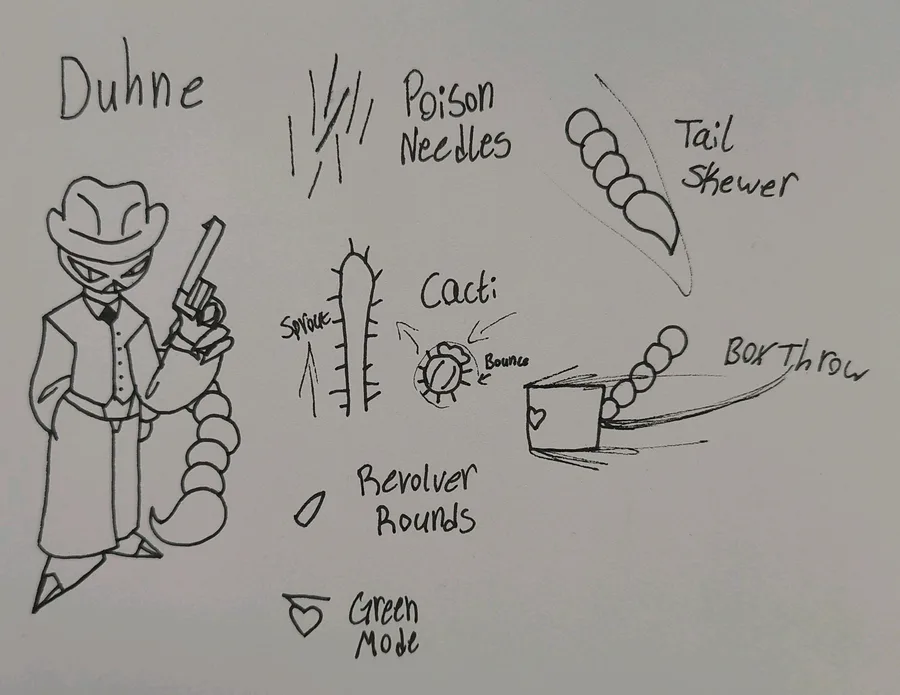 Duhne
Poison
Needles
Tail
Skewer
Cacti
Sprout
Bounce
Box Throw
Revolver
Rounds
Green
Mode